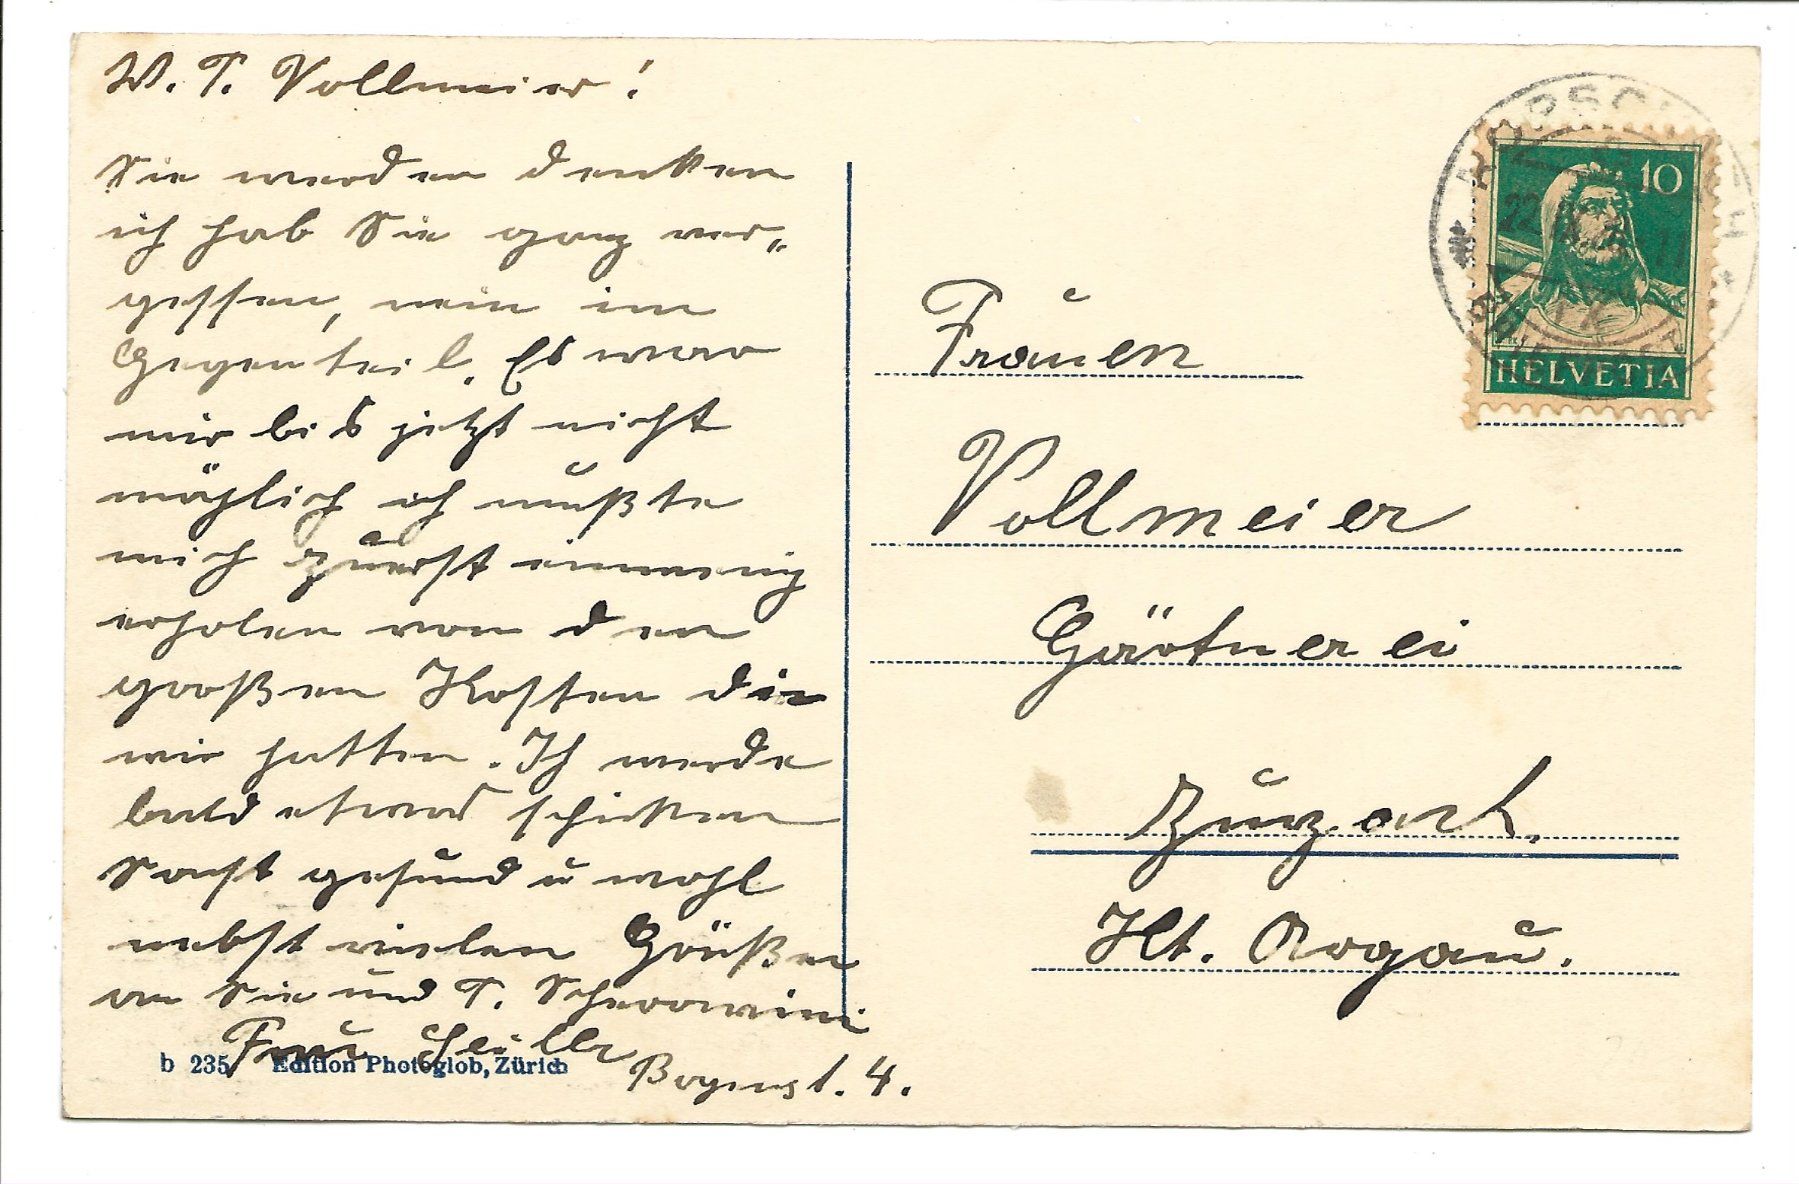 W. T. Vollmeier!
Sie werden denken
ich hab Sie ganz ver-
gessen, nein im
Gegenteil. Es war
mir bis jetzt nicht
möglich ich mußte
mich zuerst ein wenig
erholen von den
großen Kosten die
wir hatten. Ich werde
bald etwas schicken
Sonst gesund u wohl
nebst vielen Grüßen
an Sie und T.
Frau
b 235 Edition Photoglob, Zürich
4.
10
HELVETIA
Frauen
Vollmeier
Gärtnerei
Zurzach.
Kt. Aargau.